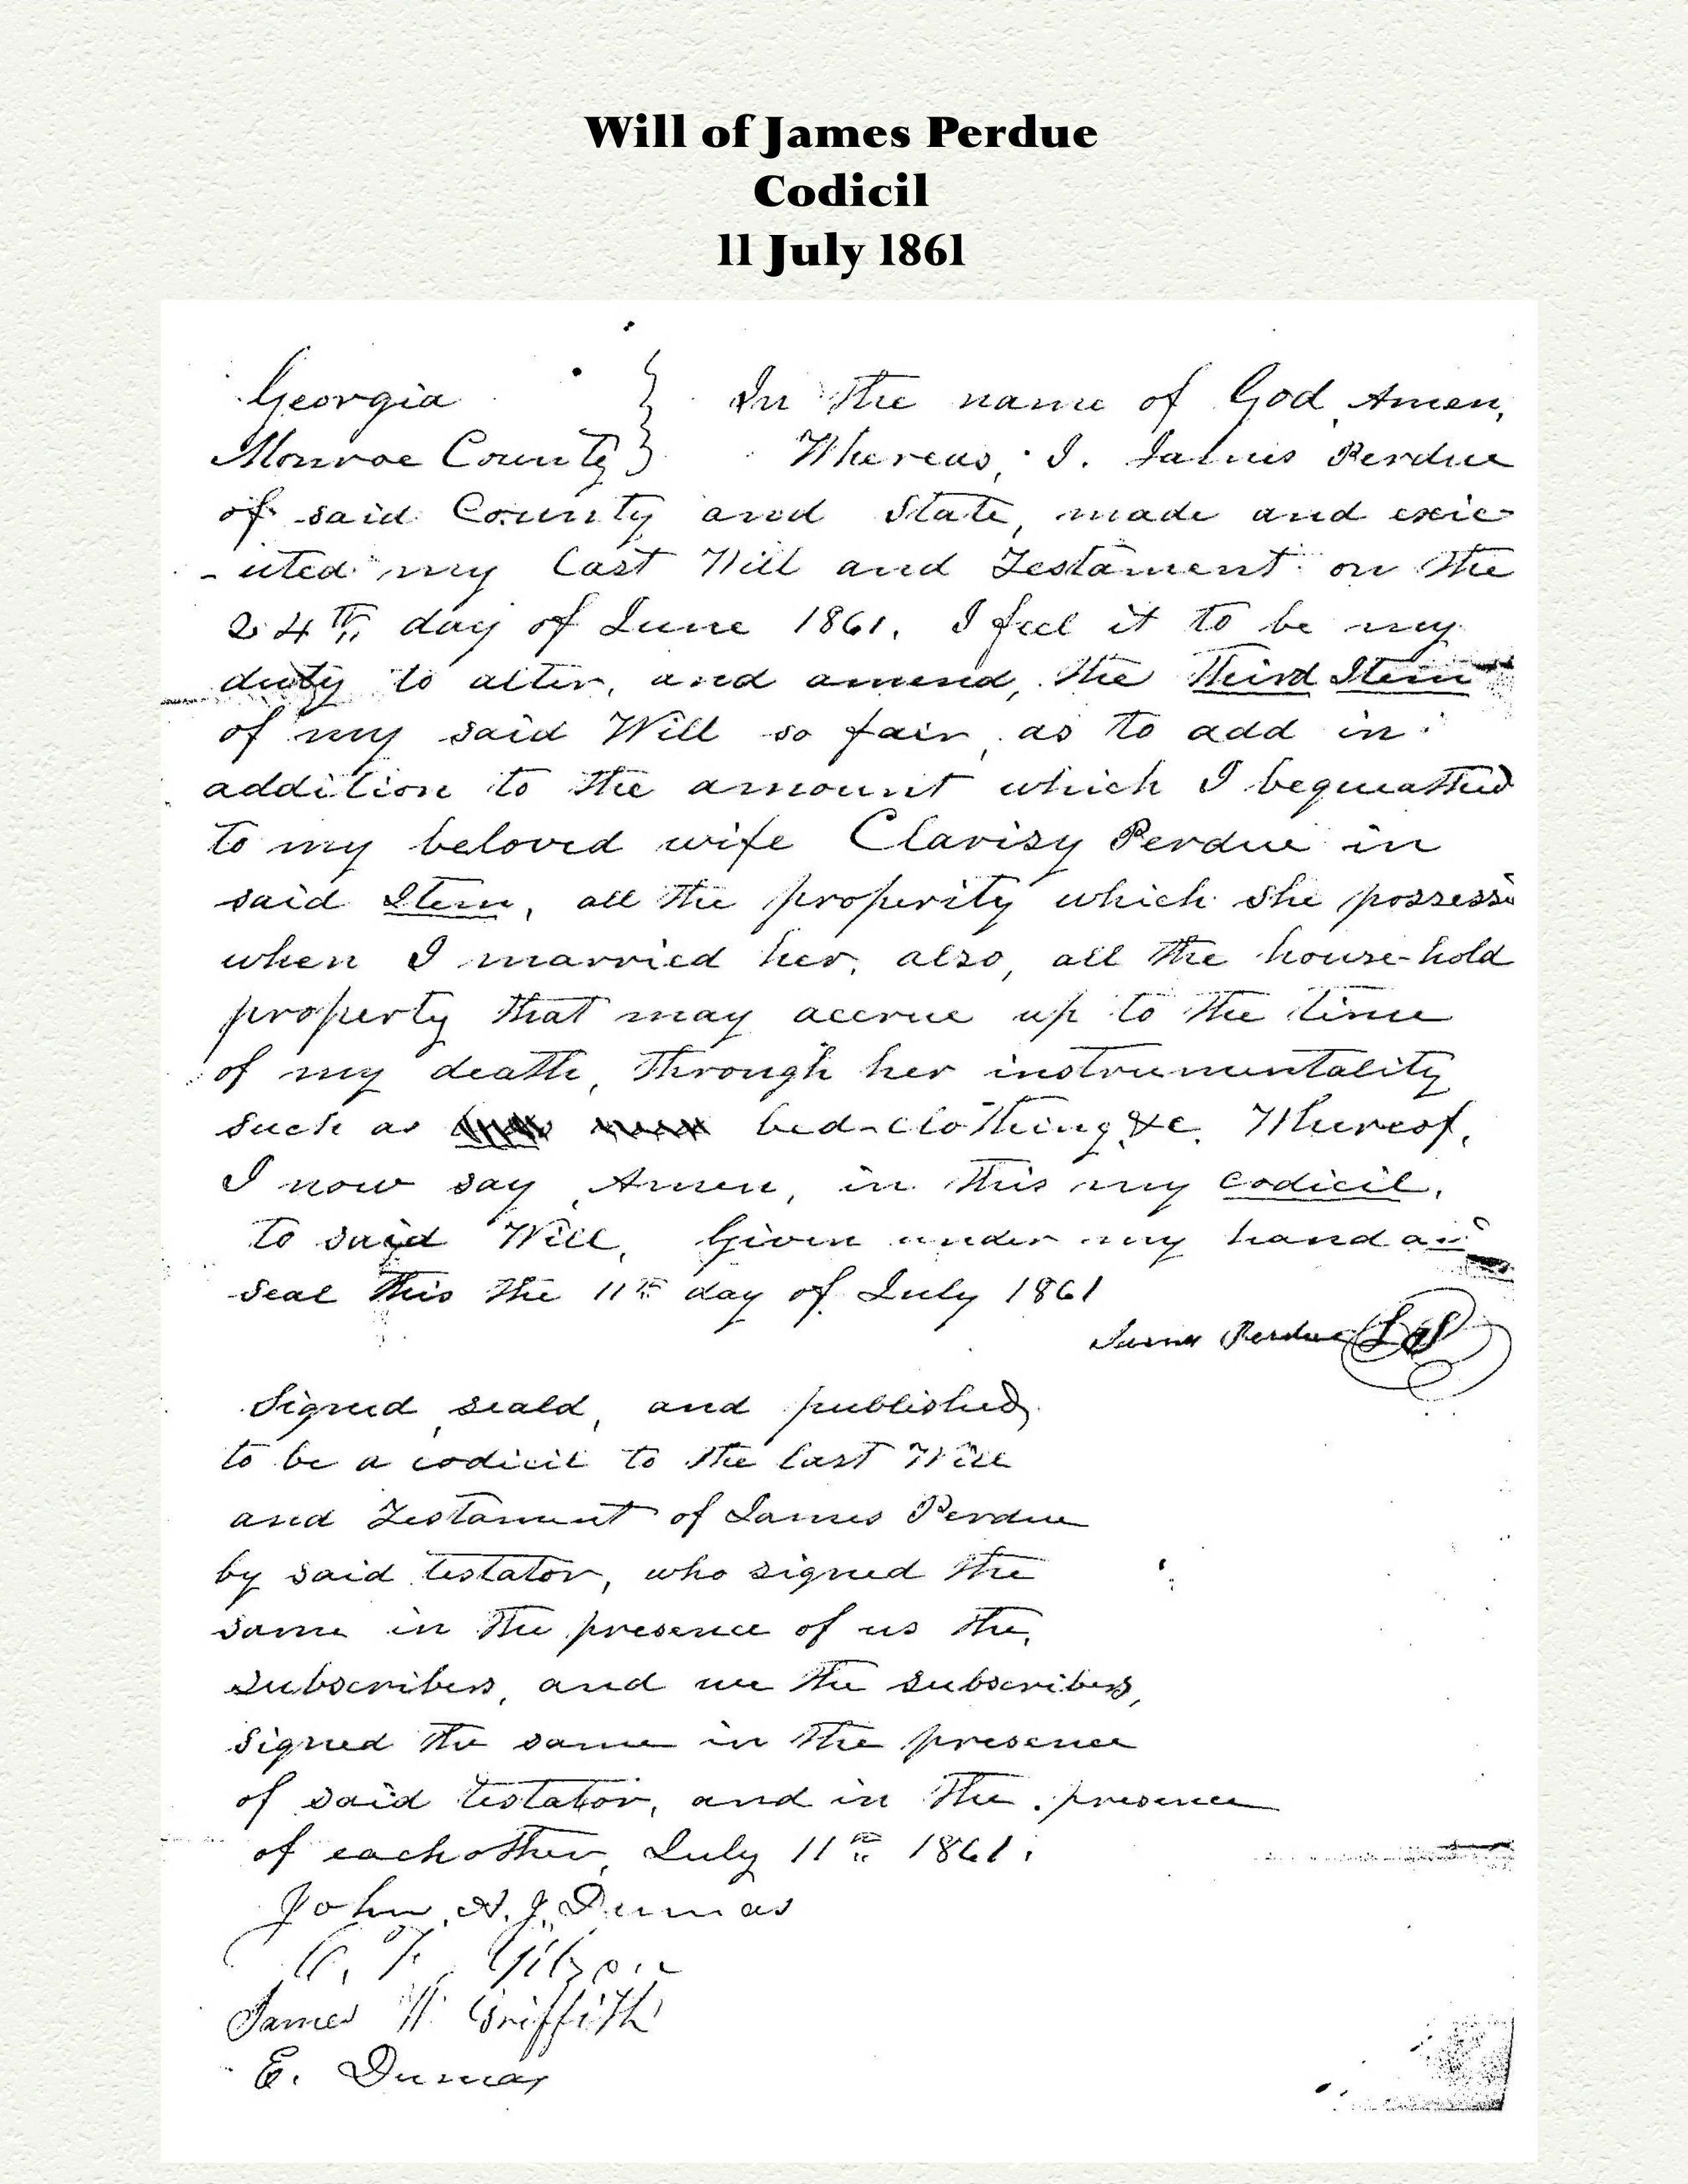 Will of James Perdue
Codicil
11 July 1861
Georgia } In the name of God, Amen,
Monroe County } Whereas, I. James Perdue
of said County and State, made and exic-
-uted my Last Will and Testament on the
24th day of June 1861. I feel it to be my
duty to alter, and amend, the Third Item
of my said Will so fair, as to add in
addition to the amount which I bequeathed
to my beloved wife Clarisy Perdue in
said Item, all the property which she
when I married her, also, all the house-hold
property that may accrue up to the time
of my death, through her instrumentality
such as bed-clothing, &c. Whereof,
I now say, Amen, in this my codicil,
to said Will, Given under my hand
seal this the 11th day of July 1861
James Perdue LS
Signed, seald, and published,
to be a codicil to the last Will
and Testament of James Perdue
by said testator, who signed the
same in the presence of us the,
subscribers, and we the subscribers,
signed the same in the presence
of said testator, and in the presence
of eachother, July 11th 1861.
John J. Dumas
Gibson
James W. Griffith
E. Dumas